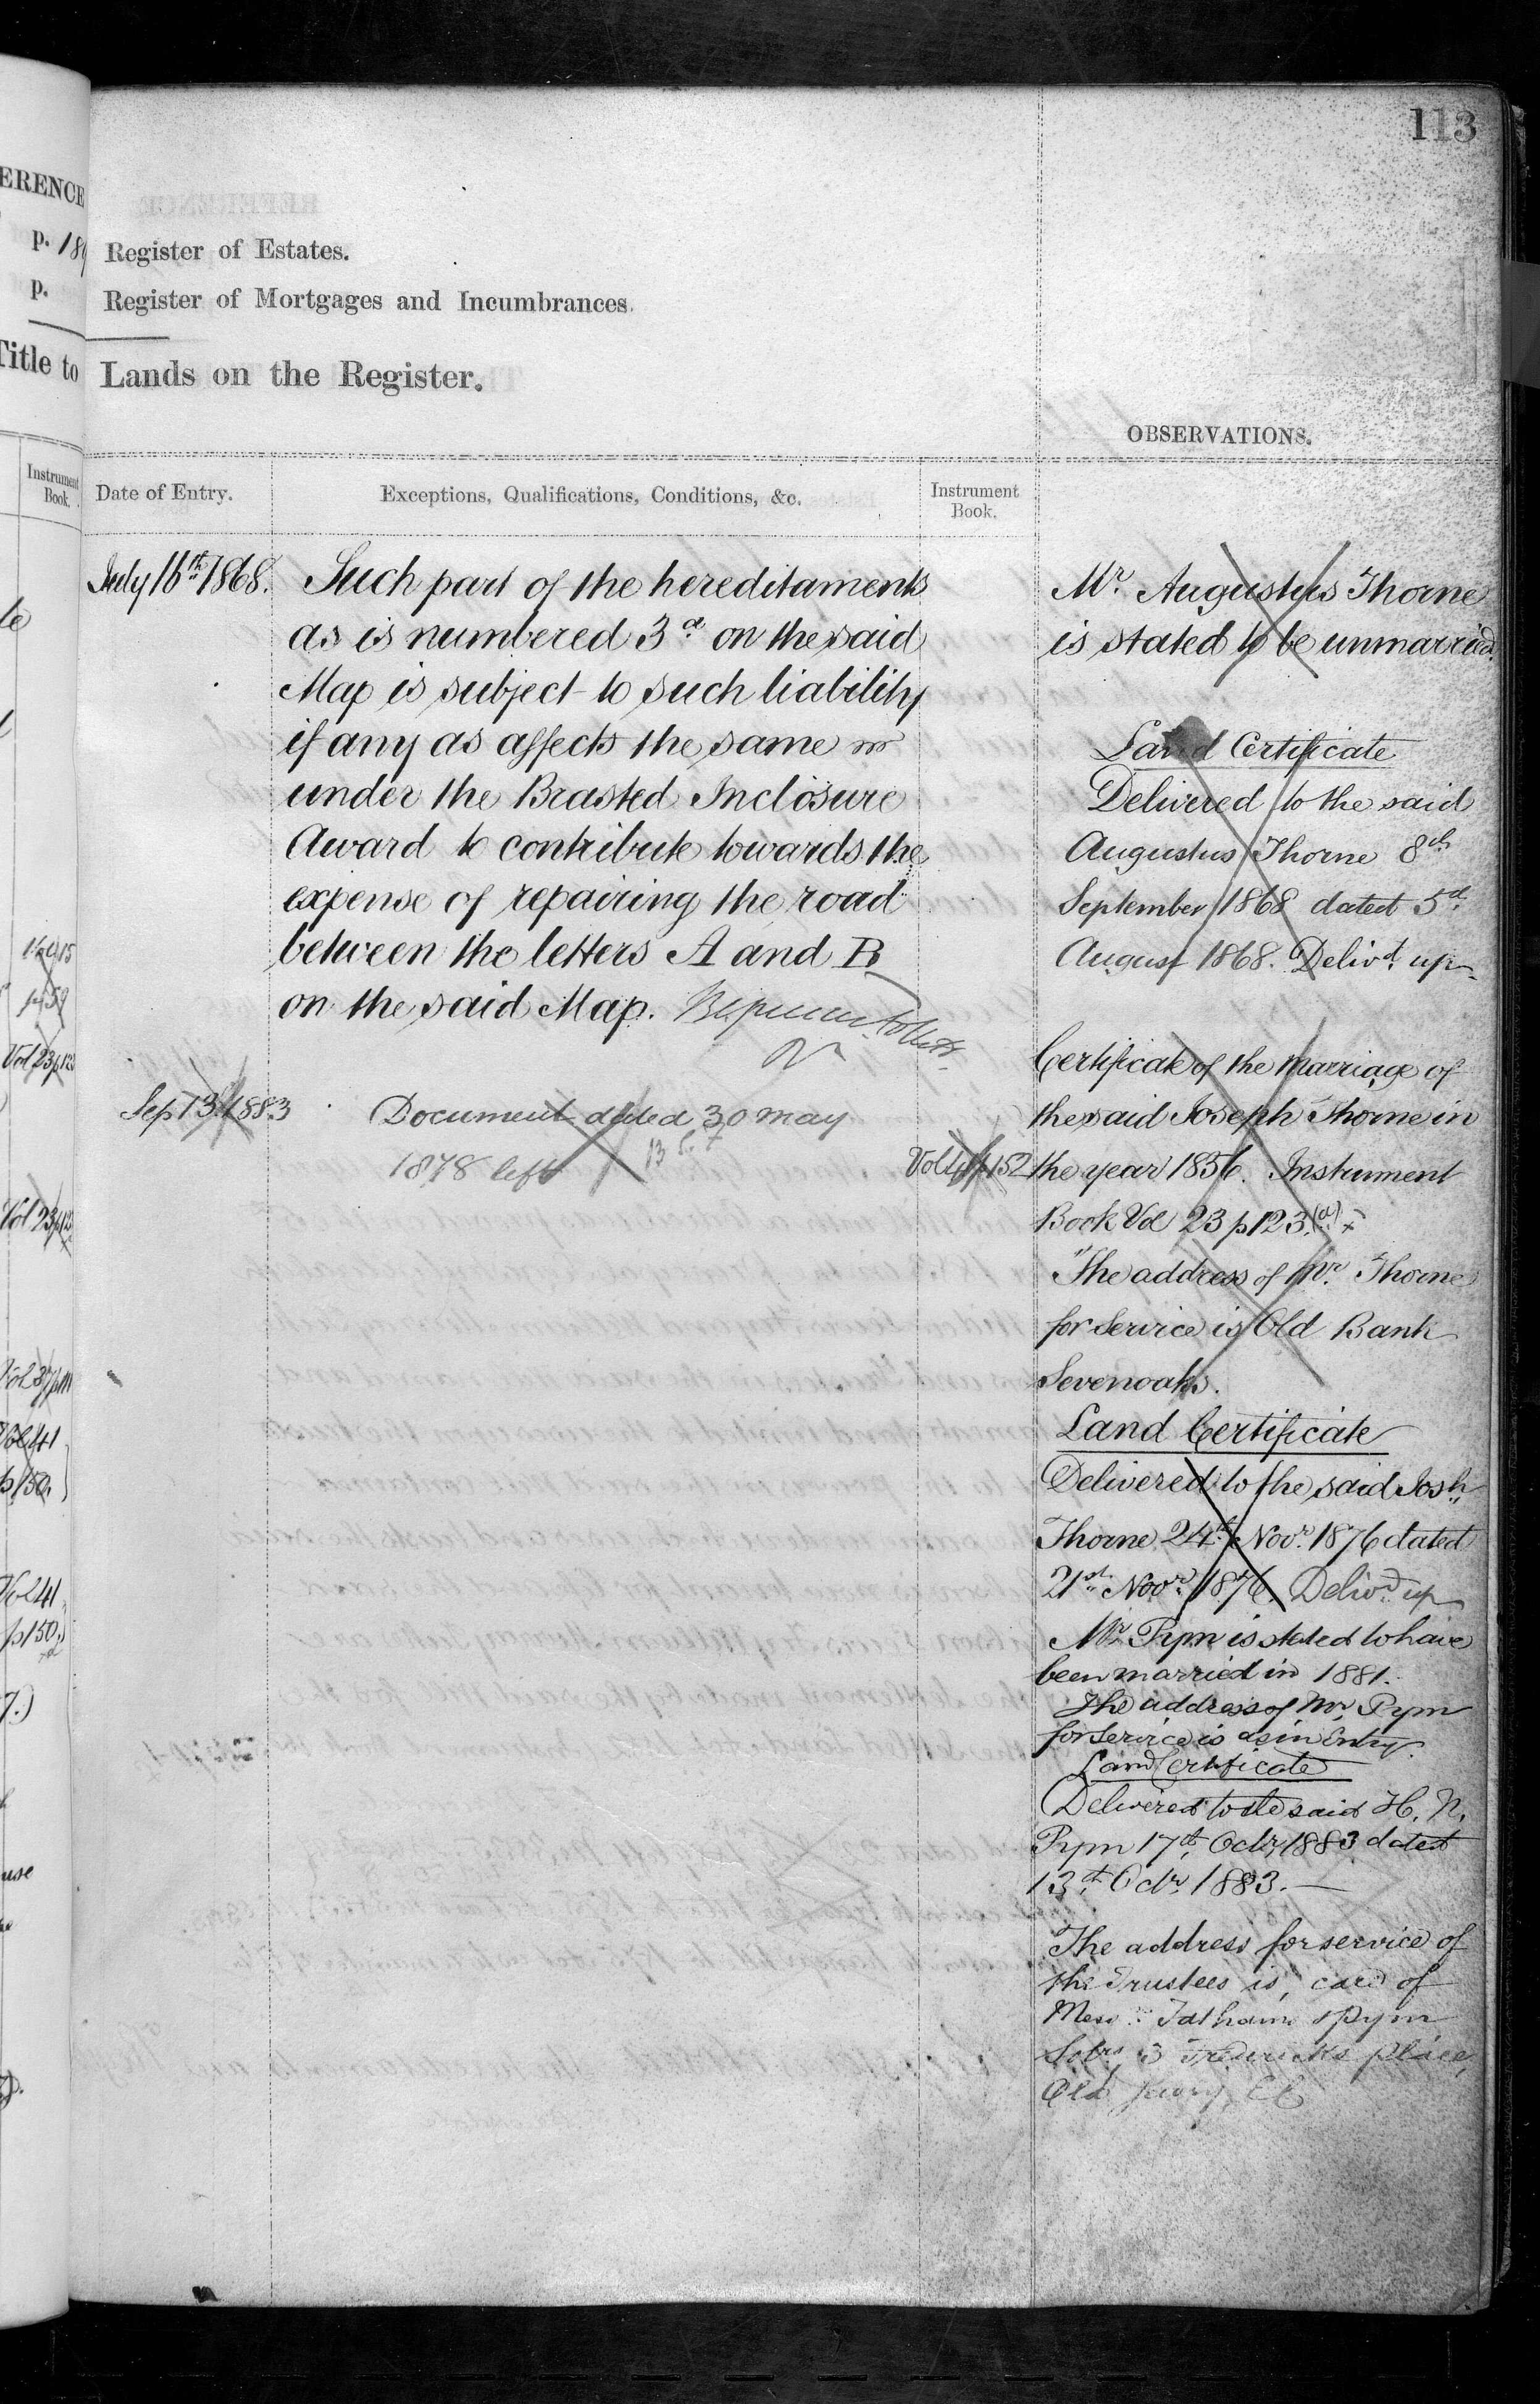 113
Register of Estates.
Register of Mortgages and Incumbrances.
Lands on the Register.
OBSERVATIONS.
Date of Entry.
Exceptions, Qualifications, Conditions, &c.
Instrument
Book.
July 16th 1868.
Such part of the hereditaments
as is numbered 3a on the said
Map is subject to such liability
if any as affects the same
under the Brasted Inclosure
Award to contribute towards the
expense of repairing the road
between the letters A and B
on the said Map.
Sep 13th 1883
Document dated 30 May
1878 left
Vol 41 p 152
Mr. Augustus Thorne
is stated to be unmarried.
Land Certificate
Delivered to the said
Augustus Thorne 8th
September 1868 dated 5th
August 1868. Delivd. up
Certificate of the marriage of
the said Joseph Thorne in
the year 1856. Instrument
Book Vol 23 p 123.(a)
The address of Mr. Thorne
for Service is Old Bank
Sevenoaks.
Land Certificate
Delivered to the said Josh
Thorne 24th Novr. 1876 dated
21st Novr. 1876. Delivd up
Mr. Pym is stated to have
been married in 1881.
The address of Mr. Pym
for Service is as in Entry.
Land Certificate
Delivered to the said H. N.
Pym 17th Octr 1883 dated
13th Octr. 1883.—
The address for service of
the Trustees is, care of
Messrs Tatham & Pym
Solrs, 3 Frederick's Place,
Old Jewry, EC
ERENCE
p. 189
p.
Title to
Instrument
Book.
Vol 23 p 123
Vol 41
p 150.
Vol 41
p 150.